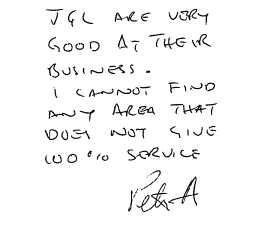 JGL ARE VERY
GOOD AT THEIR
BUSINESS.
I CANNOT FIND
ANY AREA THAT
DOES NOT GIVE
100% SERVICE